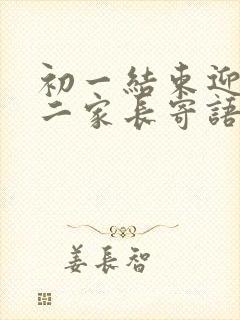 初一結束迎
二家長寄語
姜長智